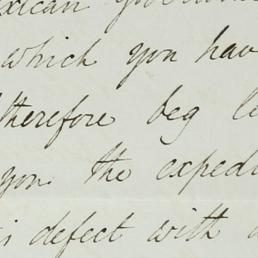 which you hav
therefore beg l
you the exped
is defect with